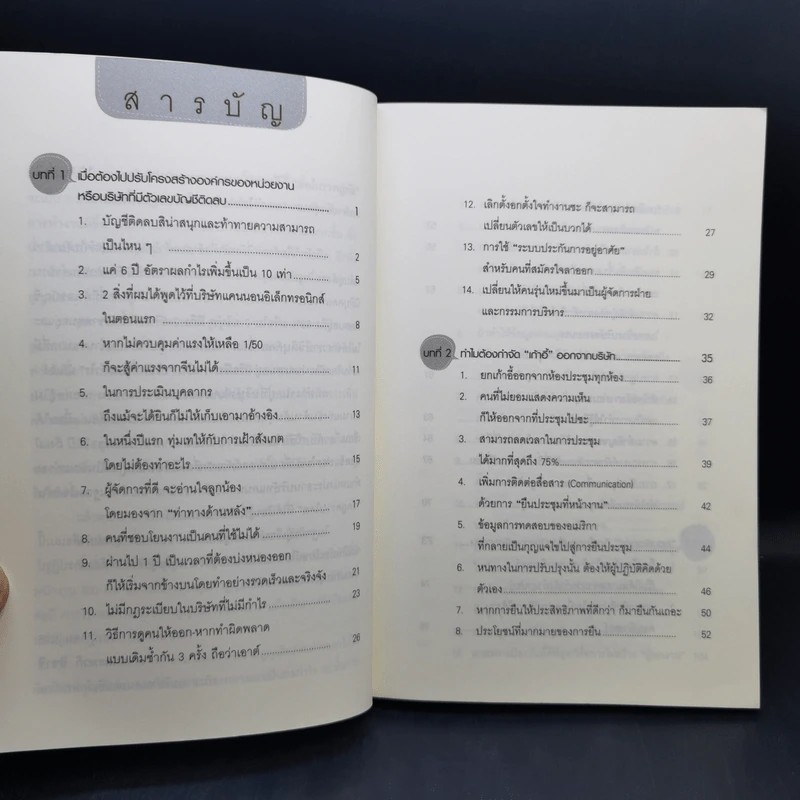 สารบัญ
บทที่ 1 เมื่อต้องไปปรับโครงสร้างองค์กรของหน่วยงาน
หรือบริษัทที่มีตัวเลขบัญชีติดลบ 1
1. บัญชีติดลบสิน่าสนุกและท้าทายความสามารถ
เป็นไหน ๆ 2
2. แค่ 6 ปี อัตราผลกำไรเพิ่มขึ้นเป็น 10 เท่า 5
3. 2 สิ่งที่ผมได้พูดไว้ที่บริษัทแคนนอนอิเล็กทรอนิกส์
ในตอนแรก 8
4. หากไม่ควบคุมค่าแรงให้เหลือ 1/50
ก็จะสู้ค่าแรงจากจีนไม่ได้ 11
5. ในการประเมินบุคลากร
ถึงแม้จะได้ยินก็ไม่ให้เก็บเอามาอ้างอิง 13
6. ในหนึ่งปีแรก ทุ่มเทให้กับการเฝ้าสังเกต
โดยไม่ต้องทำอะไร 15
7. ผู้จัดการที่ดี จะอ่านใจลูกน้อง
โดยมองจาก "ท่าทางด้านหลัง" 17
8. คนที่ชอบโยนงานเป็นคนที่ใช้ไม่ได้ 19
9. ผ่านไป 1 ปี เป็นเวลาที่ต้องบ่งหนองออก
ก็ให้เริ่มจากข้างบนโดยทำอย่างรวดเร็วและจริงจัง 21
10. ไม่มีกฎระเบียบในบริษัทที่ไม่มีกำไร 23
11. วิธีการดูคนให้ออก-หากทำผิดพลาด
แบบเดิมซ้ำกัน 3 ครั้ง ถือว่าเอาต์ 26
12. เลิกตั้งอกตั้งใจทำงานซะ ก็จะสามารถ
เปลี่ยนตัวเลขให้เป็นบวกได้ 27
13. การใช้ "ระบบประกันการอยู่อาศัย"
สำหรับคนที่สมัครใจลาออก 29
14. เปลี่ยนให้คนรุ่นใหม่ขึ้นมาเป็นผู้จัดการฝ่าย
และกรรมการบริหาร 32
บทที่ 2 ทำไมต้องกำจัด "เก้าอี้" ออกจากบริษัท 35
1. ยกเก้าอี้ออกจากห้องประชุมทุกห้อง 36
2. คนที่ไม่ยอมแสดงความเห็น
ก็ให้ออกจากที่ประชุมไปซะ 37
3. สามารถลดเวลาในการประชุม
ได้มากที่สุดถึง 75% 39
4. เพิ่มการติดต่อสื่อสาร (Communication)
ด้วยการ "ยืนประชุมที่หน้างาน" 42
5. ข้อมูลการทดสอบของอเมริกา
ที่กลายเป็นกุญแจไขไปสู่การยืนประชุม 44
6. หนทางในการปรับปรุงนั้น ต้องให้ผู้ปฏิบัติคิดด้วย
ตัวเอง 46
7. หากการยืนให้ประสิทธิภาพที่ดีกว่า ก็มายืนกันเถอะ 50
8. ประโยชน์ที่มากมายของการยืน 52